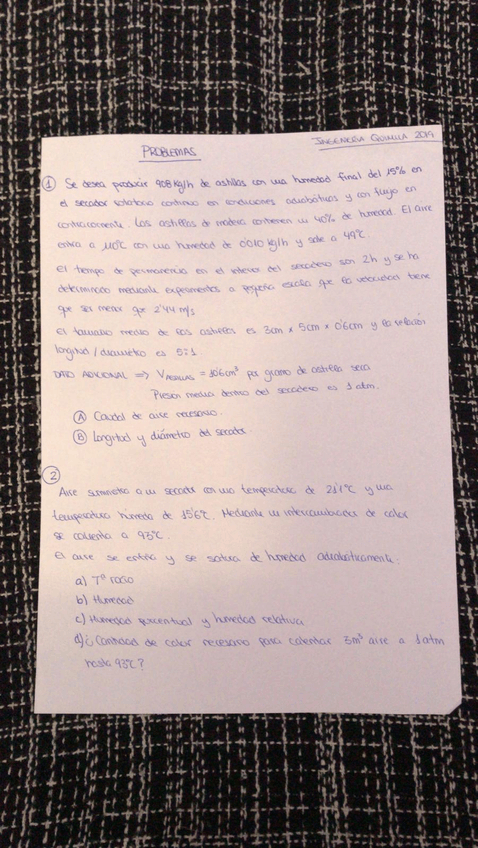 INGENIERÍA QUÍMICA 2019
PROBLEMAS
1 Se desea producir 908 kg/h de astillas con una humedad final del 15% en
el secador rotatorio continuo en condiciones adiabáticas y con flujo en
contracorriente. Las astillas de madera contienen un 40% de humedad. El aire
entra a 110°C con una humedad de 0'010 kg/h y sale a 49°C.
El tiempo de permanencia en el interior del secadero son 2h y se ha
determinado mediante experimentos a pequeña escala que la velocidad tiene
que ser menor que 2'44 m/s
El tamaño medio de las astillas es 3cm x 5cm x 0'6cm y la relación
longitud/diámetro es 5:1
DATO ADICIONAL => V ASTILLAS = 106cm³ por gramo de astilla seca
Presión media dentro del secadero es 1 atm.
A Caudal de aire necesario.
B Longitud y diámetro del secador.
2
Aire suministra a un secador con una temperatura de 21'1°C y una
temperatura húmeda de 15'6°C. Mediante un intercambiador de calor
se calienta a 93°C.
El aire se enfría y se satura de humedad adiabáticamente.
a) Tª rocío
b) Humedad
c) Humedad porcentual y humedad relativa
d) ¿Cantidad de calor necesario para calentar 3m³ aire a 1 atm
hasta 93°C?